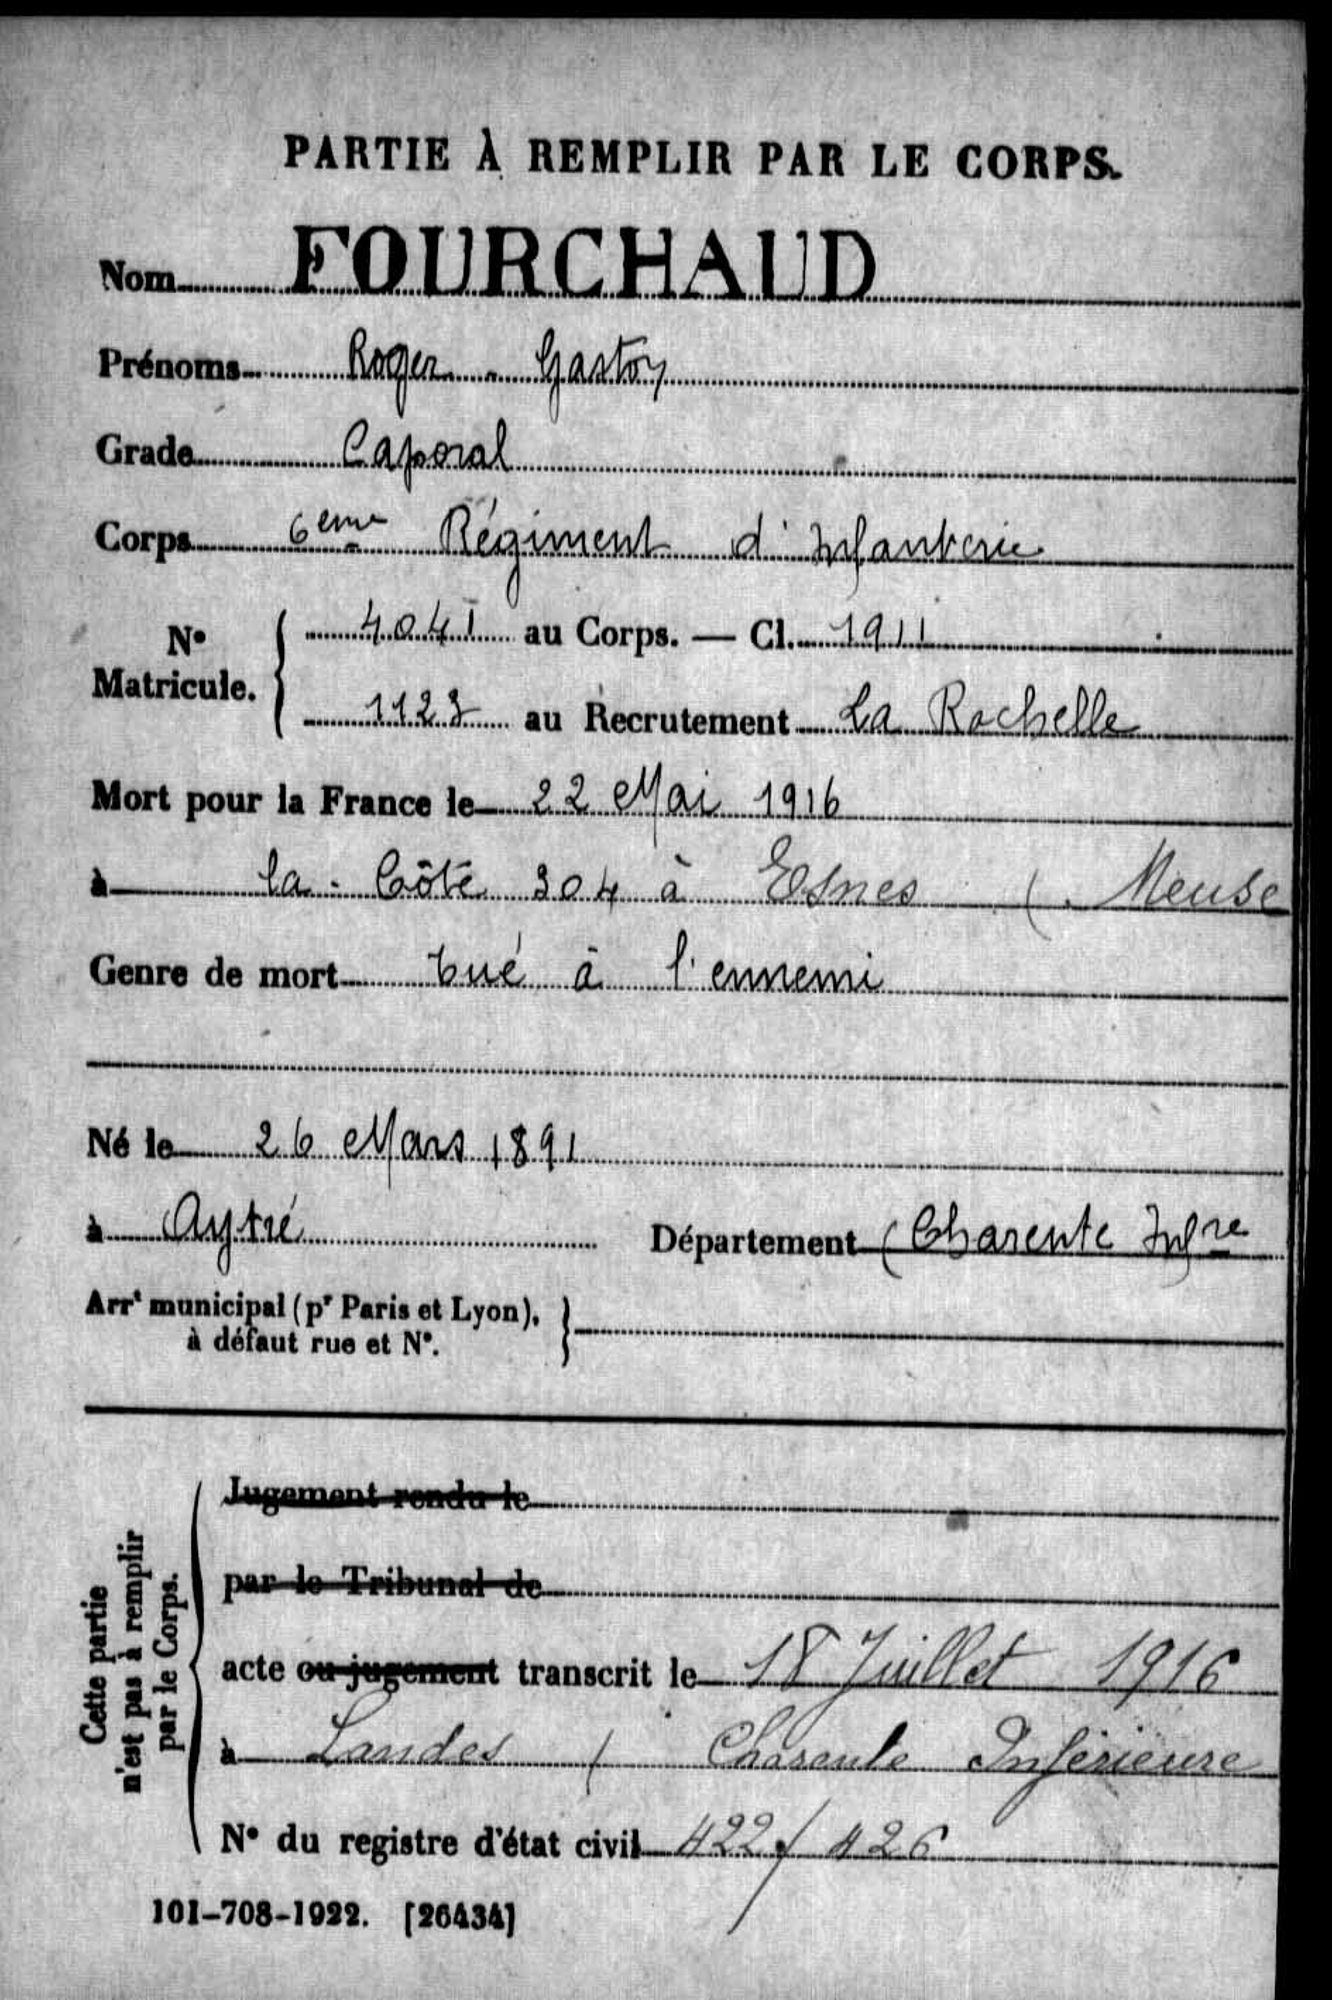 PARTIE À REMPLIR PAR LE CORPS.
Nom FOURCHAUD
Prénoms Roger - Gaston
Grade Caporal
Corps 6eme Régiment d'Infanterie
N° Matricule. { 4041 au Corps. — Cl. 1911
1123 au Recrutement La Rochelle
Mort pour la France le 22 Mai 1916
à la - Côte 304 à Esnes (Meuse
Genre de mort tué à l'ennemi
Né le 26 Mars 1891
à Aytré Département (Charente Infre
Arrt municipal (pr Paris et Lyon), à défaut rue et N°. }
Cette partie n'est pas à remplir par le Corps.
Jugement rendu le
par le Tribunal de
acte ou jugement transcrit le 18 Juillet 1916
à Landes ( Charente Inférieure
N° du registre d'état civil 422 / 426
101-708-1922. [26434]